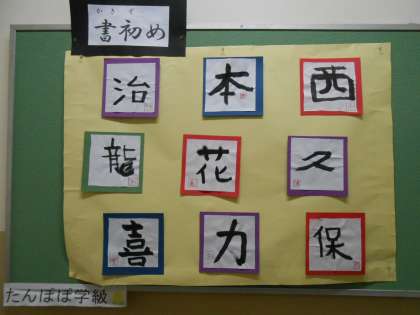 かきぞ
書初め
治 本 西
龍 花 久
喜 力 保
たんぽぽ学級